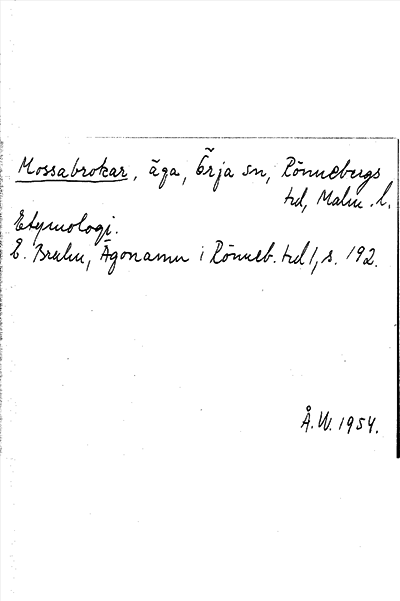 Mossabrokar, äga, Örja sn, Rönnebergs
hd, Malm. l.
Etymologi.
E. Bruhn, Ägonamn i Rönneb. hd 1, s. 192.
Å. W. 1954.